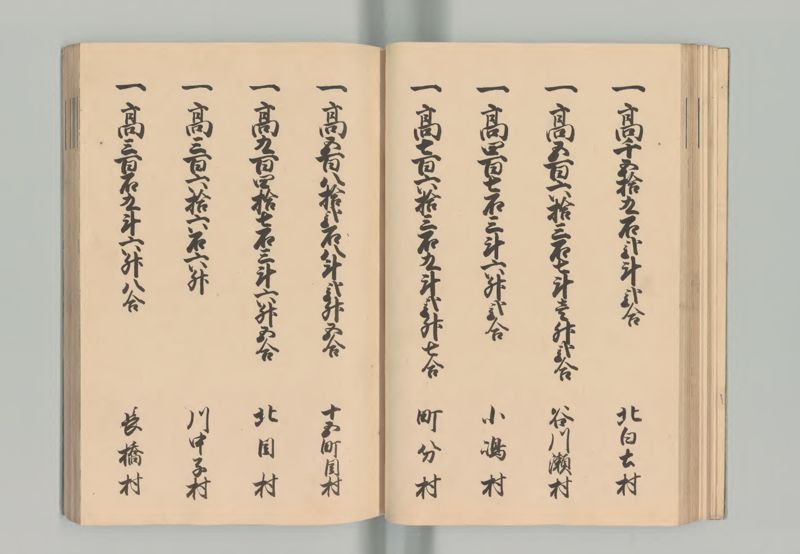 一高千五拾九石弐斗弐合
北白土村
一高五百六拾三石七斗壱升弐合
谷川瀬村
一高四百七石三斗六升弐合
小嶋村
一高七百六拾三石九斗弐升七合
町分村
一高五百八拾弐石八斗弐升五合
十五町目村
一高九百四拾七石三斗六升五合
北目村
一高三百六拾六石六升
川中子村
一高三百石九斗六升八合
長橋村